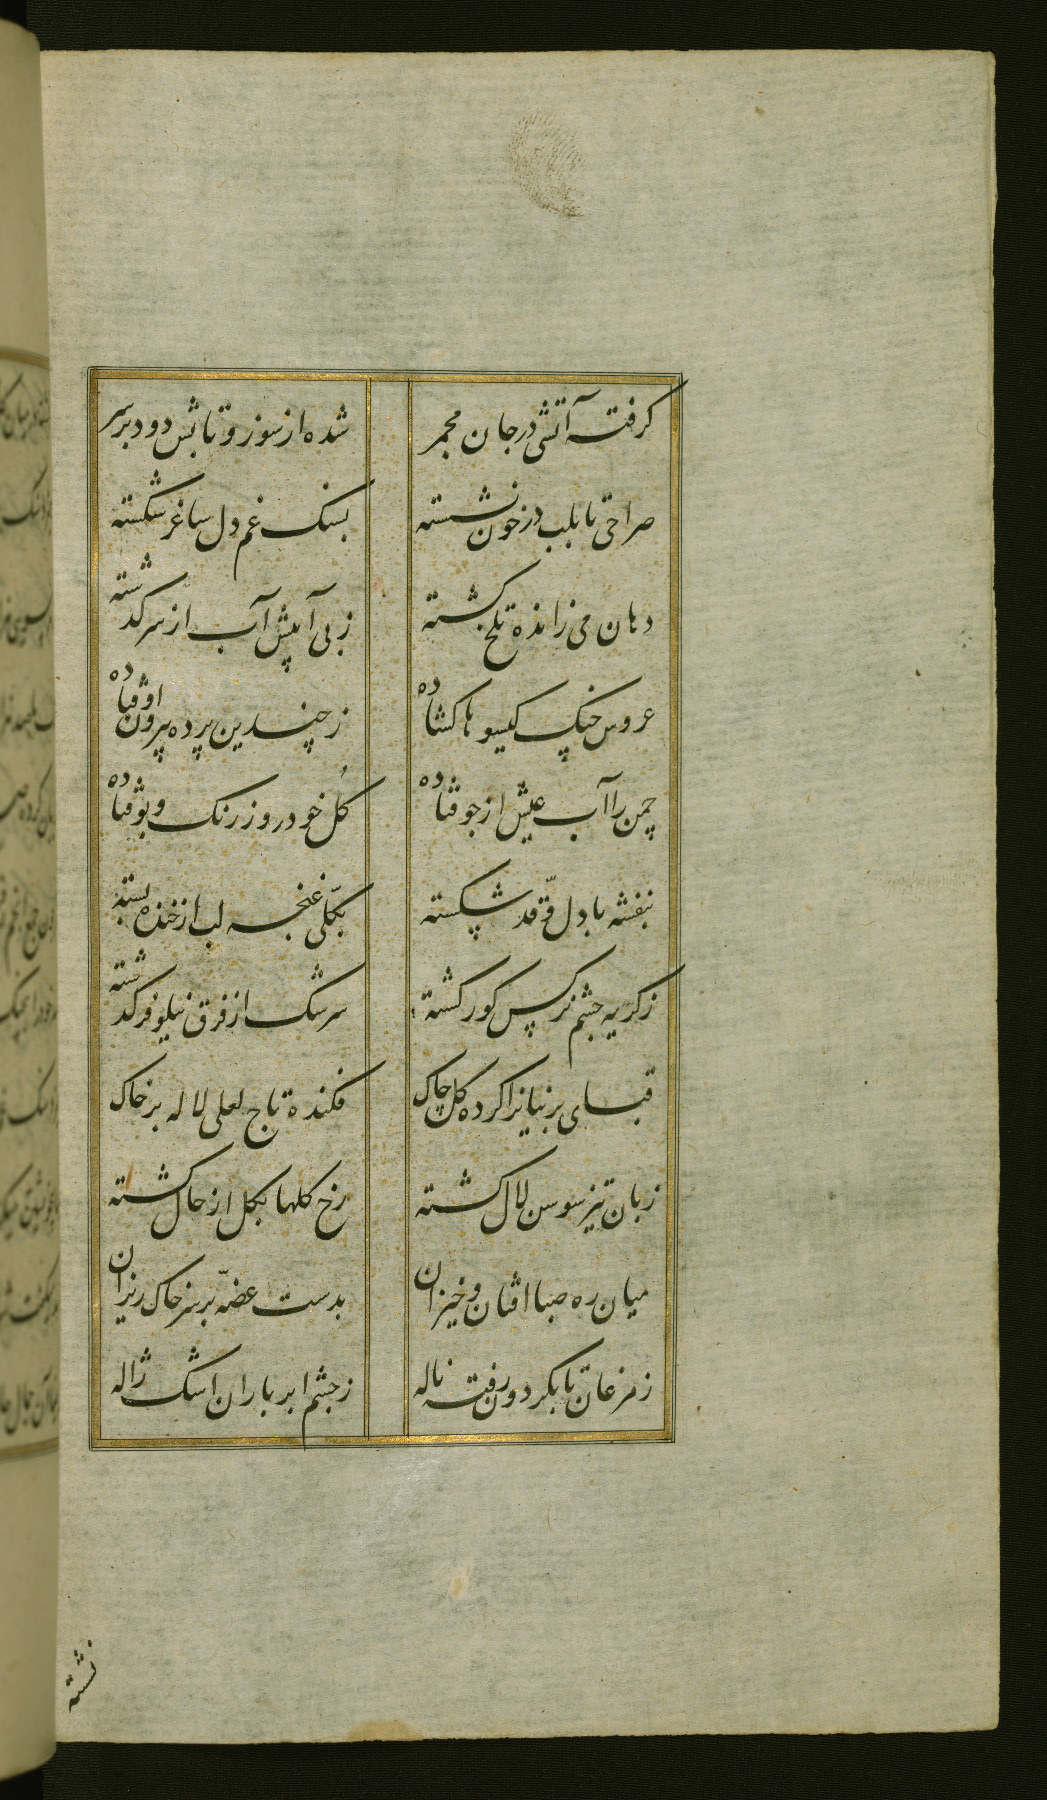 کرفته آتشی در جان مجمر
شده از سوز و تابش دود بر سر
صراحی تا بلب در خون نشسته
بسنک غم دل ساغر شکسته
دهان می ز انده تلخ کشته
ز بی آبیش آب از سر کذشته
عروس چنک کیسوها کشاده
ز چندین پرده بیرون اوفتاده
چمن را آب عیش از جو فتاده
کل خودرو ز رنک و بو فتاده
بنفشه با دل و قد شکسته
بکلی غنچه لب از خنده بسته
ز کریه چشم نرکس کور کشته
سرشک از فرق نیلوفر کذشته
قبای پرنیانرا کرده کل چاک
فکنده تاج لعلی لاله بر خاک
زبان تیز سوسن لال کشته
رخ کلها بکل از حال کشته
میان ره صبا افتان و خیزان
بدست غصّه بر سر خاک ریزان
ز مرغان تا بکردون رفته ناله
ز چشم ابر باران اشک ژاله
نشسته